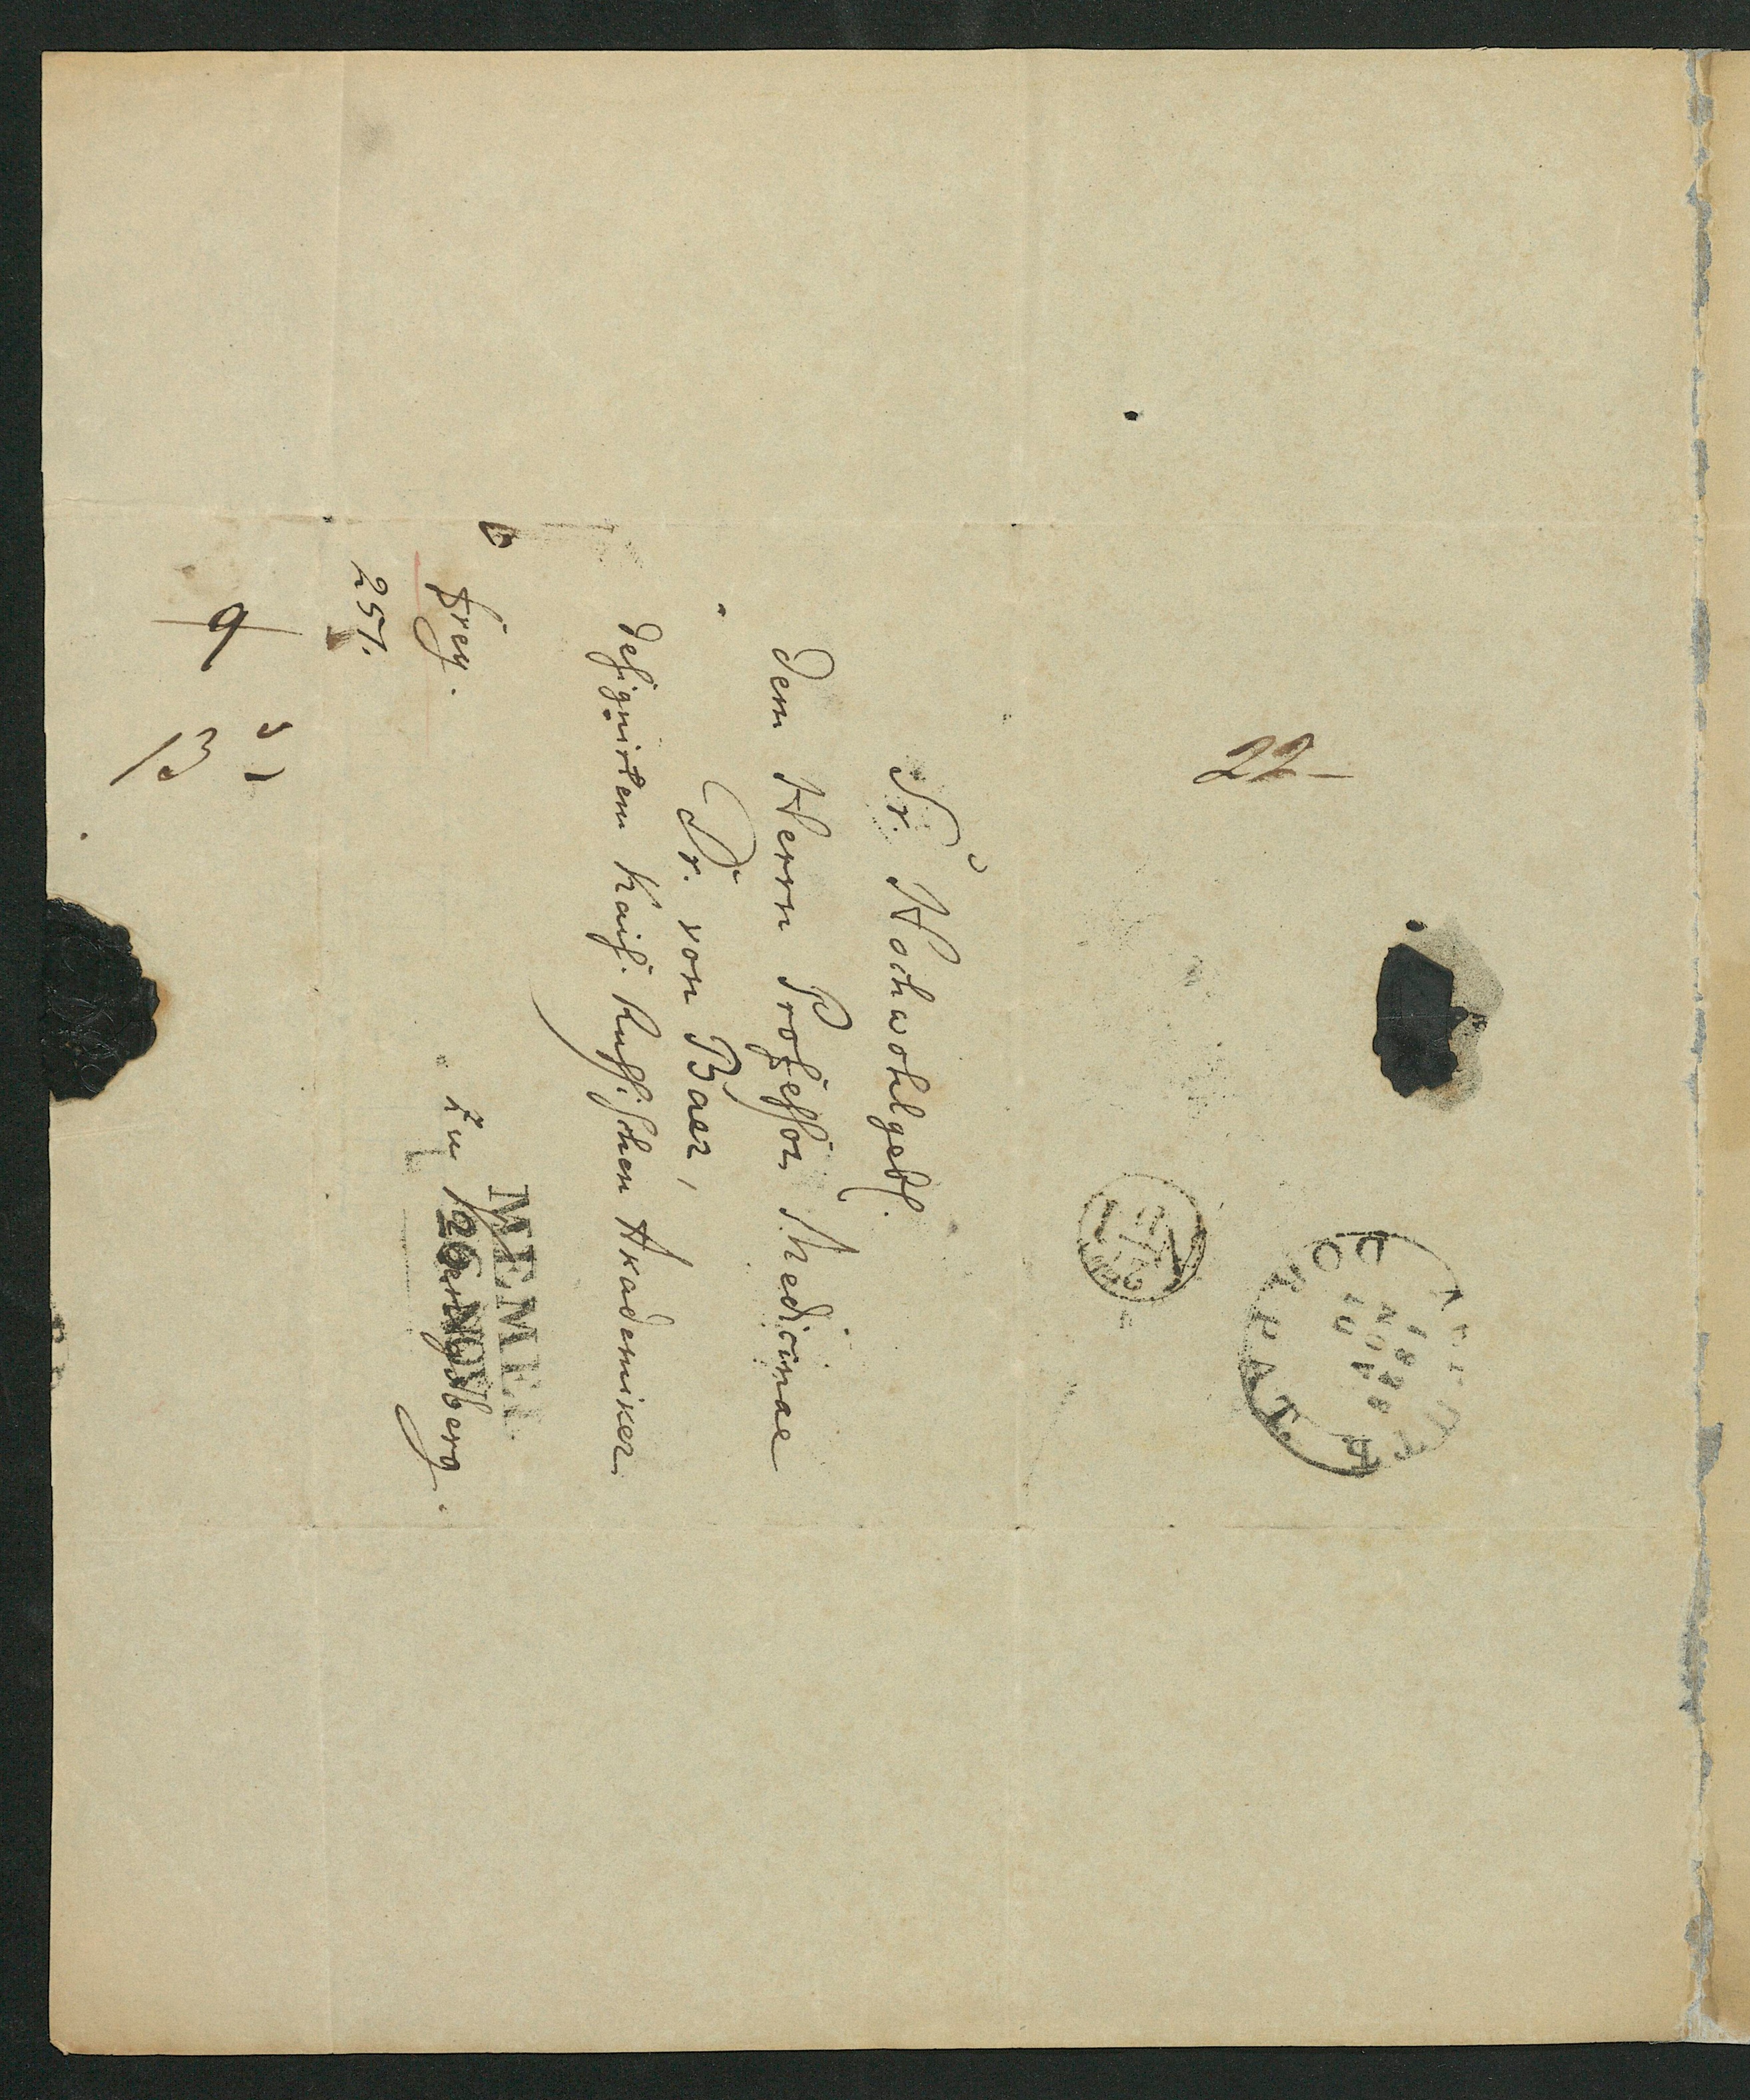 Sr. Hochwohlgeb.
dem Herrn Professor Medicinae
Dr. von Baer,
designirtem Kais. Russischen Akademiker
frey.
zu Koenigsberg.
257.
9
13
22
MEMEL
26 NOV
DORPAT